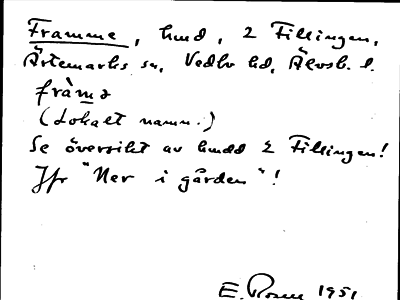 Framme, hmd, 2 Fillingen,
Ärtemarks sn, Vedbo hd, Älvsb. l.
fràmə
(Lokalt namn.)
Se översikt av hmdd 2 Fillingen!
Jfr "Ner i gården"!
E. Rosén 1951